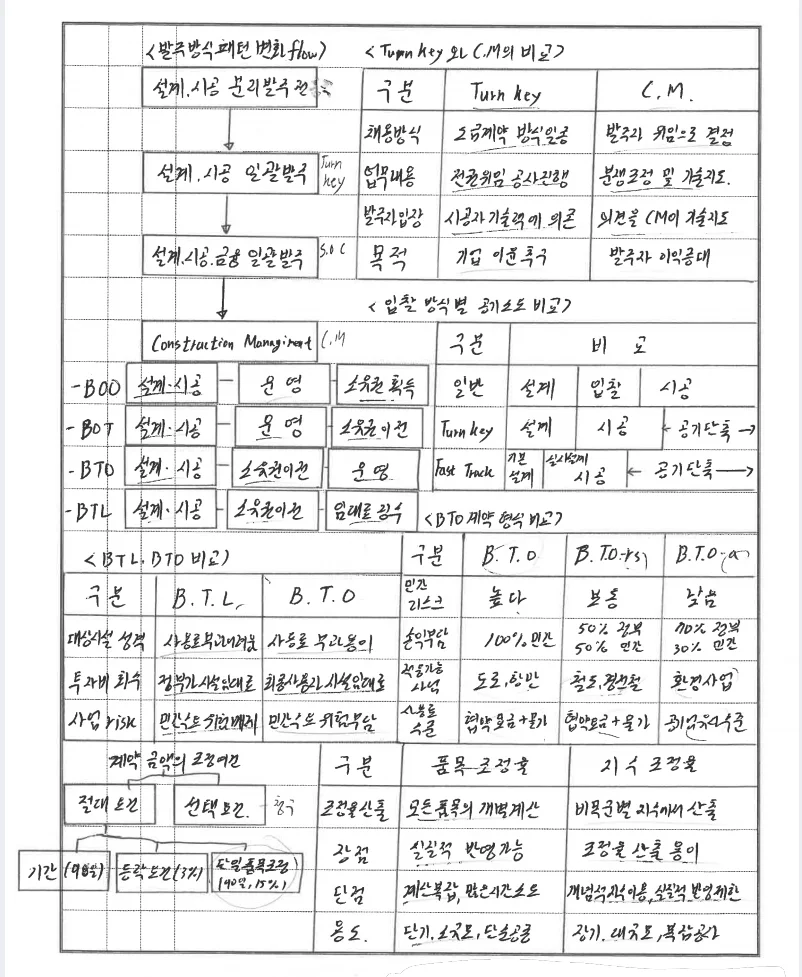 <발주방식 패턴 변화 flow>
설계.시공 분리발주
설계.시공 일괄발주 Turn key
설계.시공.금융 일괄발주 S.O.C
Construction Managiment C.M
<Turn key 와 C.M의 비교>
구분 Turn key C.M.
채용방식 도급계약 방식일종 발주자 위임으로 결정
업무내용 전권위임 공사진행 분쟁조정 및 기술지도.
발주자입장 시공자 기술력에 의존 의견을 CM이 기술지도
목적 기업 이윤추구 발주자 이익증대
<입찰 방식별 공기소요 비교>
구분 비 교
일반 설계 입찰 시공
Turn key 설계 시공 ← 공기단축 →
Fast Track 기본설계 실시설계 시공 ← 공기단축 →
-BOO 설계.시공 - 운영 - 소유권 획득
-BOT 설계.시공 - 운영 - 소유권이전
-BTO 설계.시공 - 소유권이전 - 운영
-BTL 설계.시공 - 소유권이전 - 임대료 징수
<BTL. BTO 비교>
구분 B.T.L. B.T.O
대상시설 성격 사용료부과어려움 사용료 부과용이
투자비 회수 정부가 시설임대료 최종사용자 시설임대료
사업 risk 민간수요 위험배제 민간수요 위험부담
<BTO 계약 형식 비교>
구분 B.T.O B.T.O-rs B.T.O-a
민간 리스크 높다 보통 낮음
손익부담 100% 민간 50% 정부 50% 민간 70% 정부 30% 민간
적용가능 사업 도로, 항만 철도, 경전철 환경사업
사용료 수준 협약요금+물가 협약요금+물가 공기업 유사수준
계약 금액의 조정여건
절대 요건 선택 요건 - 청구
기간 (90일) 등락요건 (3%) 단일품목조정 (90일, 15%)
구분 품목 조정율 지수 조정율
조정율산출 모든 품목의 개별계산 비목군별 지수에서 산출
장점 실질적 반영가능 조정율 산출 용이
단점 계산복잡, 많은시간소요 개념적지식이용, 실질적 반영제한
용도. 단기, 소규모, 단순공종 장기. 대규모, 복잡공사